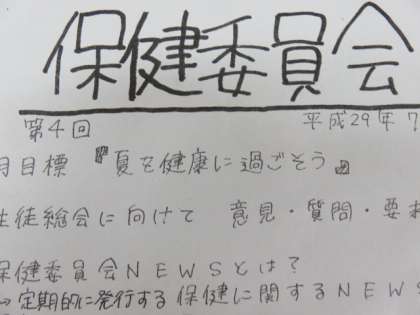 保健委員会
第4回 平成29年7
月目標 『夏を健康に過ごそう』
生徒総会に向けて 意見・質問・要
保健委員会NEWSとは?
→定期的に発行する保健に関するNEWS